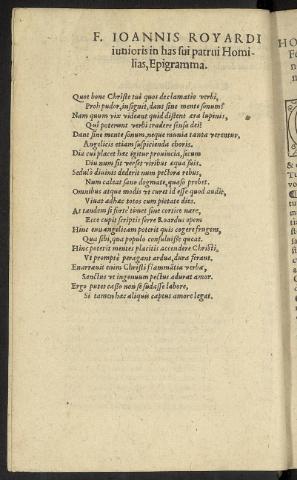 F. IOANNIS ROYARDI
iunioris in has sui patrui Homi-
lias, Epigramma.
Quot bone Christe tuũ quos declamatio verbi,
Proh pudor, insignit, dans sine mente sonum?
Nam quum vix videant quid distent æra lupinis,
Quî poterunt verbi tradere sensa dei?
Dans sine mente sonum, neque munia tanta verentur,
Angelicis etiam suspicienda choris.
Dia cui placet hæc igitur prouincia, secum
Diu num sit verset viribus æqua suis.
Sedulò diuinis dederit num pectora rebus,
Num calleat sano dogmate, quæso probet.
Omnibus atque modis vt curat id esse quod audit,
Viuat adhæc totus cum pietate dies.
At tandem si fortè timet sine cortice nare,
Ecce cupit scriptis ferre Roardus opem
Hinc euangelicam poterit quis cogere frugem,
Qua sibi, qua populo consuluisse queat.
Hinc poterit mentes placitis accendere Christi,
Vt promptè peragant ardua, dura ferant.
Enarrauit enim Christi flammãtia verba,
Sanctus vt ingenuum pectus adurat amor.
Ergo putes casso non se sudasse labore,
Si tamen hæc aliquis captus amore legat.